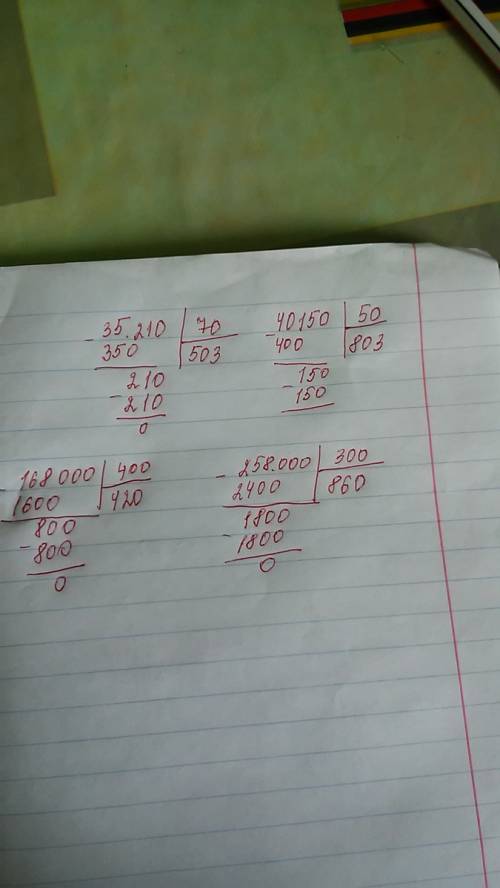 - 35.210 | 70
350 | 503
- 210
210
0
- 40150 | 50
400 | 803
- 150
150
- 168000 | 400
1600 | 420
- 800
800
0
- 258.000 | 300
2400 | 860
- 1800
1800
0